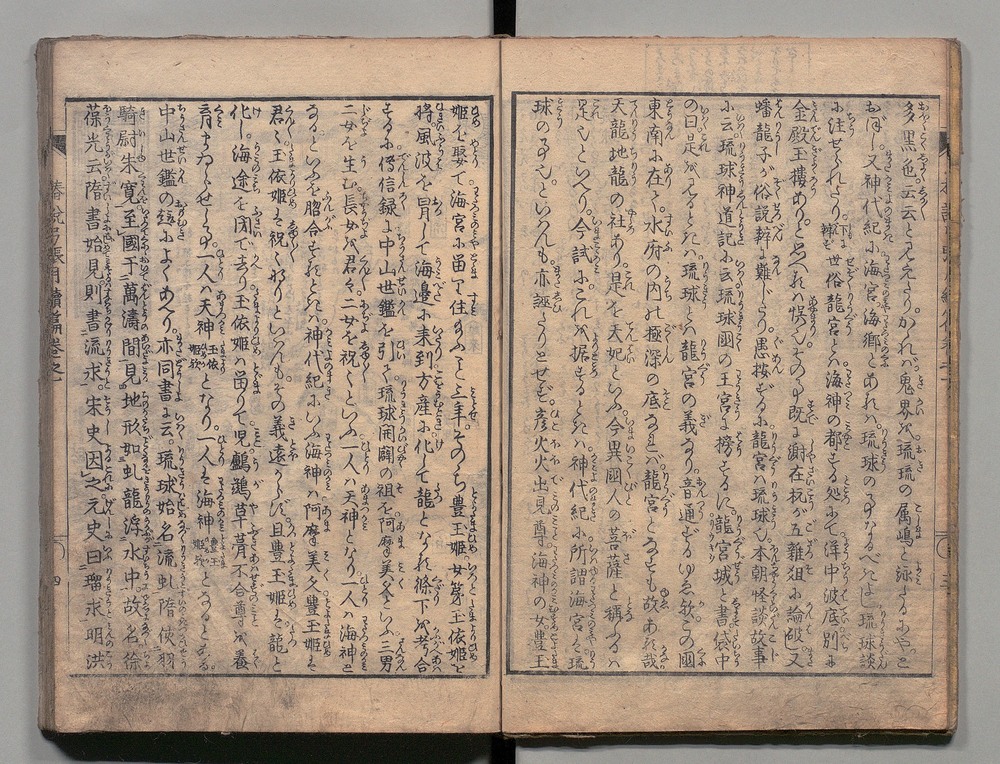 多黒也云云と見えたりかゝれバ鬼界ハ琉球の属嶋と泳たるにやと
おぼし又神代紀に海宮海郷とあれバ琉球の事なるべきよし琉球談
に注せられたり下に辨ず世俗龍宮とハ海神の都する処にて洋中波底別に
金殿玉樓ありと思へれバ悞也その事既に謝在杭が五雜俎に論破し又
蟠龍子が俗説辨に難じたり愚按ずるに龍宮ハ琉球也本朝怪談故事
に云琉球神道記に云琉球國の王宮に榜するに龍宮城と書袋中
の曰是をもて見るときハ琉球とハ龍宮の義なり音通ずるゆゑ歟この國
東南に在て水府の内の極深の底なれバ龍宮とするも故ある哉
天龍地龍の社あり是を天妃といふ今異國の菩薩と稱ふるハ
是也といへり今試にこれに據るときハ神代紀に所謂海宮を琉
球の事也といはんも亦誣たりとせず彦火火出見尊海神の女豊玉
姫を娶て海宮に留り住給ふこと三年そのゝち豊玉姫女弟玉依姫と
將風波を冒して海邊に来到方産に化して龍となれる條下を考合
するに傳信録に中山世鑑を引て琉球開闢の祖を阿摩美久といふ三男
二女を生む長女を君々二女を祝々といふ一人ハ天神となり一人ハ海神と
なるといふを照合すれバ神代紀にいふ海神ハ阿摩美久豊玉姫ハ
君々玉依姫ハ祝々なりといはんもその義遠からじ且豊玉姫ハ龍と
化し海途を閉て去り玉依姫ハ留りて児鸕鷀草葺不合尊を養
育まゐらせし事一人ハ天神玉依姫歟となり一人ハ海神豊玉姫歟となるとある
中山世鑑の趣によくあへり亦同書に云琉球始名流虬隋使羽
騎尉朱寛至國于萬濤間見地形如虬龍浮水中故名徐
葆光云隋書始見則書流求宋史因之元史曰瑠求明洪
椿説弓張月續編巻之一
四